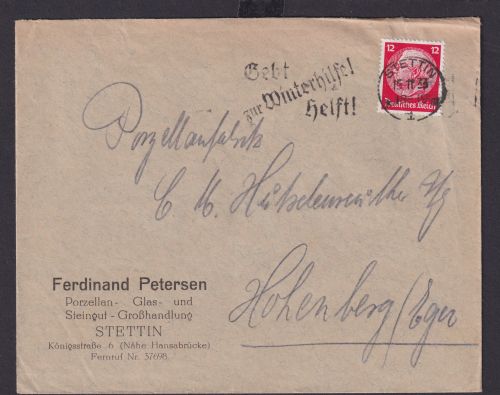 Gebt
zur Winterhilfe!
Helft!
12 12
Deutsches Reich
STETTIN
1
Porzellanfabrik
C. M. Hutschenreuther AG
Hohenberg/Eger
Ferdinand Petersen
Porzellan- Glas- und
Steingut - Großhandlung
STETTIN
Königsstraße 6 (Nähe Hansabrücke)
Fernruf Nr. 37698